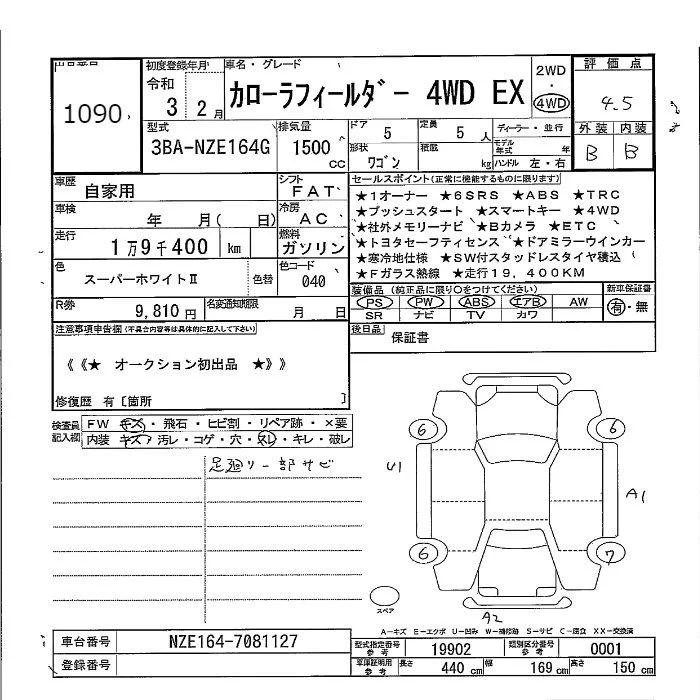 初度登録年月 車名・グレード 評価点
1090
令和
3 2月
カローラフィールダー 4WD EX
2WD
・
4WD
4.5
型式 排気量 ドア 5 定員 5人 ディーラー・並行 外装 内装
3BA-NZE164G 1500cc 形状 ワゴン 積載 kg モデル年式 年 ハンドル 左・右 B B
車歴 自家用 シフト FAT
セールスポイント(正常に機能するものに限ります)
★1オーナー ★6SRS ★ABS ★TRC
★プッシュスタート ★スマートキー ★4WD
★社外メモリーナビ ★Bカメラ ★ETC
★トヨタセーフティセンス ★ドアミラーウインカー
★寒冷地仕様 ★SW付スタッドレスタイヤ積込
★Fガラス熱線 ★走行19,400KM
車検 年 月(日) 冷房 AC
走行 1万9千400 km 燃料 ガソリン
色 スーパーホワイトⅡ 色替 色コード 040
装備品(純正品に限り○をつけてください) 新車保証書
PS PW ABS エアB AW 有・無
SR ナビ TV カワ
R券 9,810円 名変通知期限 月 日
注意事項申告欄(不具合内容等は具体的に記入して下さい)
後日品 保証書
《《★ オークション初出品 ★》》
修復歴 有〔箇所 〕
検査員記入欄 FW キズ・飛石・ヒビ割・リペア跡・×要
内装 キズ・汚レ・コゲ・穴・スレ・キレ・破レ
足廻リ一部サビ
6 6
U1
A1
6 7
スペア
A2
A-キズ E-エクボ U-凹み W-補修跡 S-サビ C-腐食 XX-交換済
車台番号 NZE164-7081127
型式指定番号参考 19902 類別区分番号参考 0001
登録番号
車庫証明用参考 長さ 440cm 幅 169cm 高さ 150cm